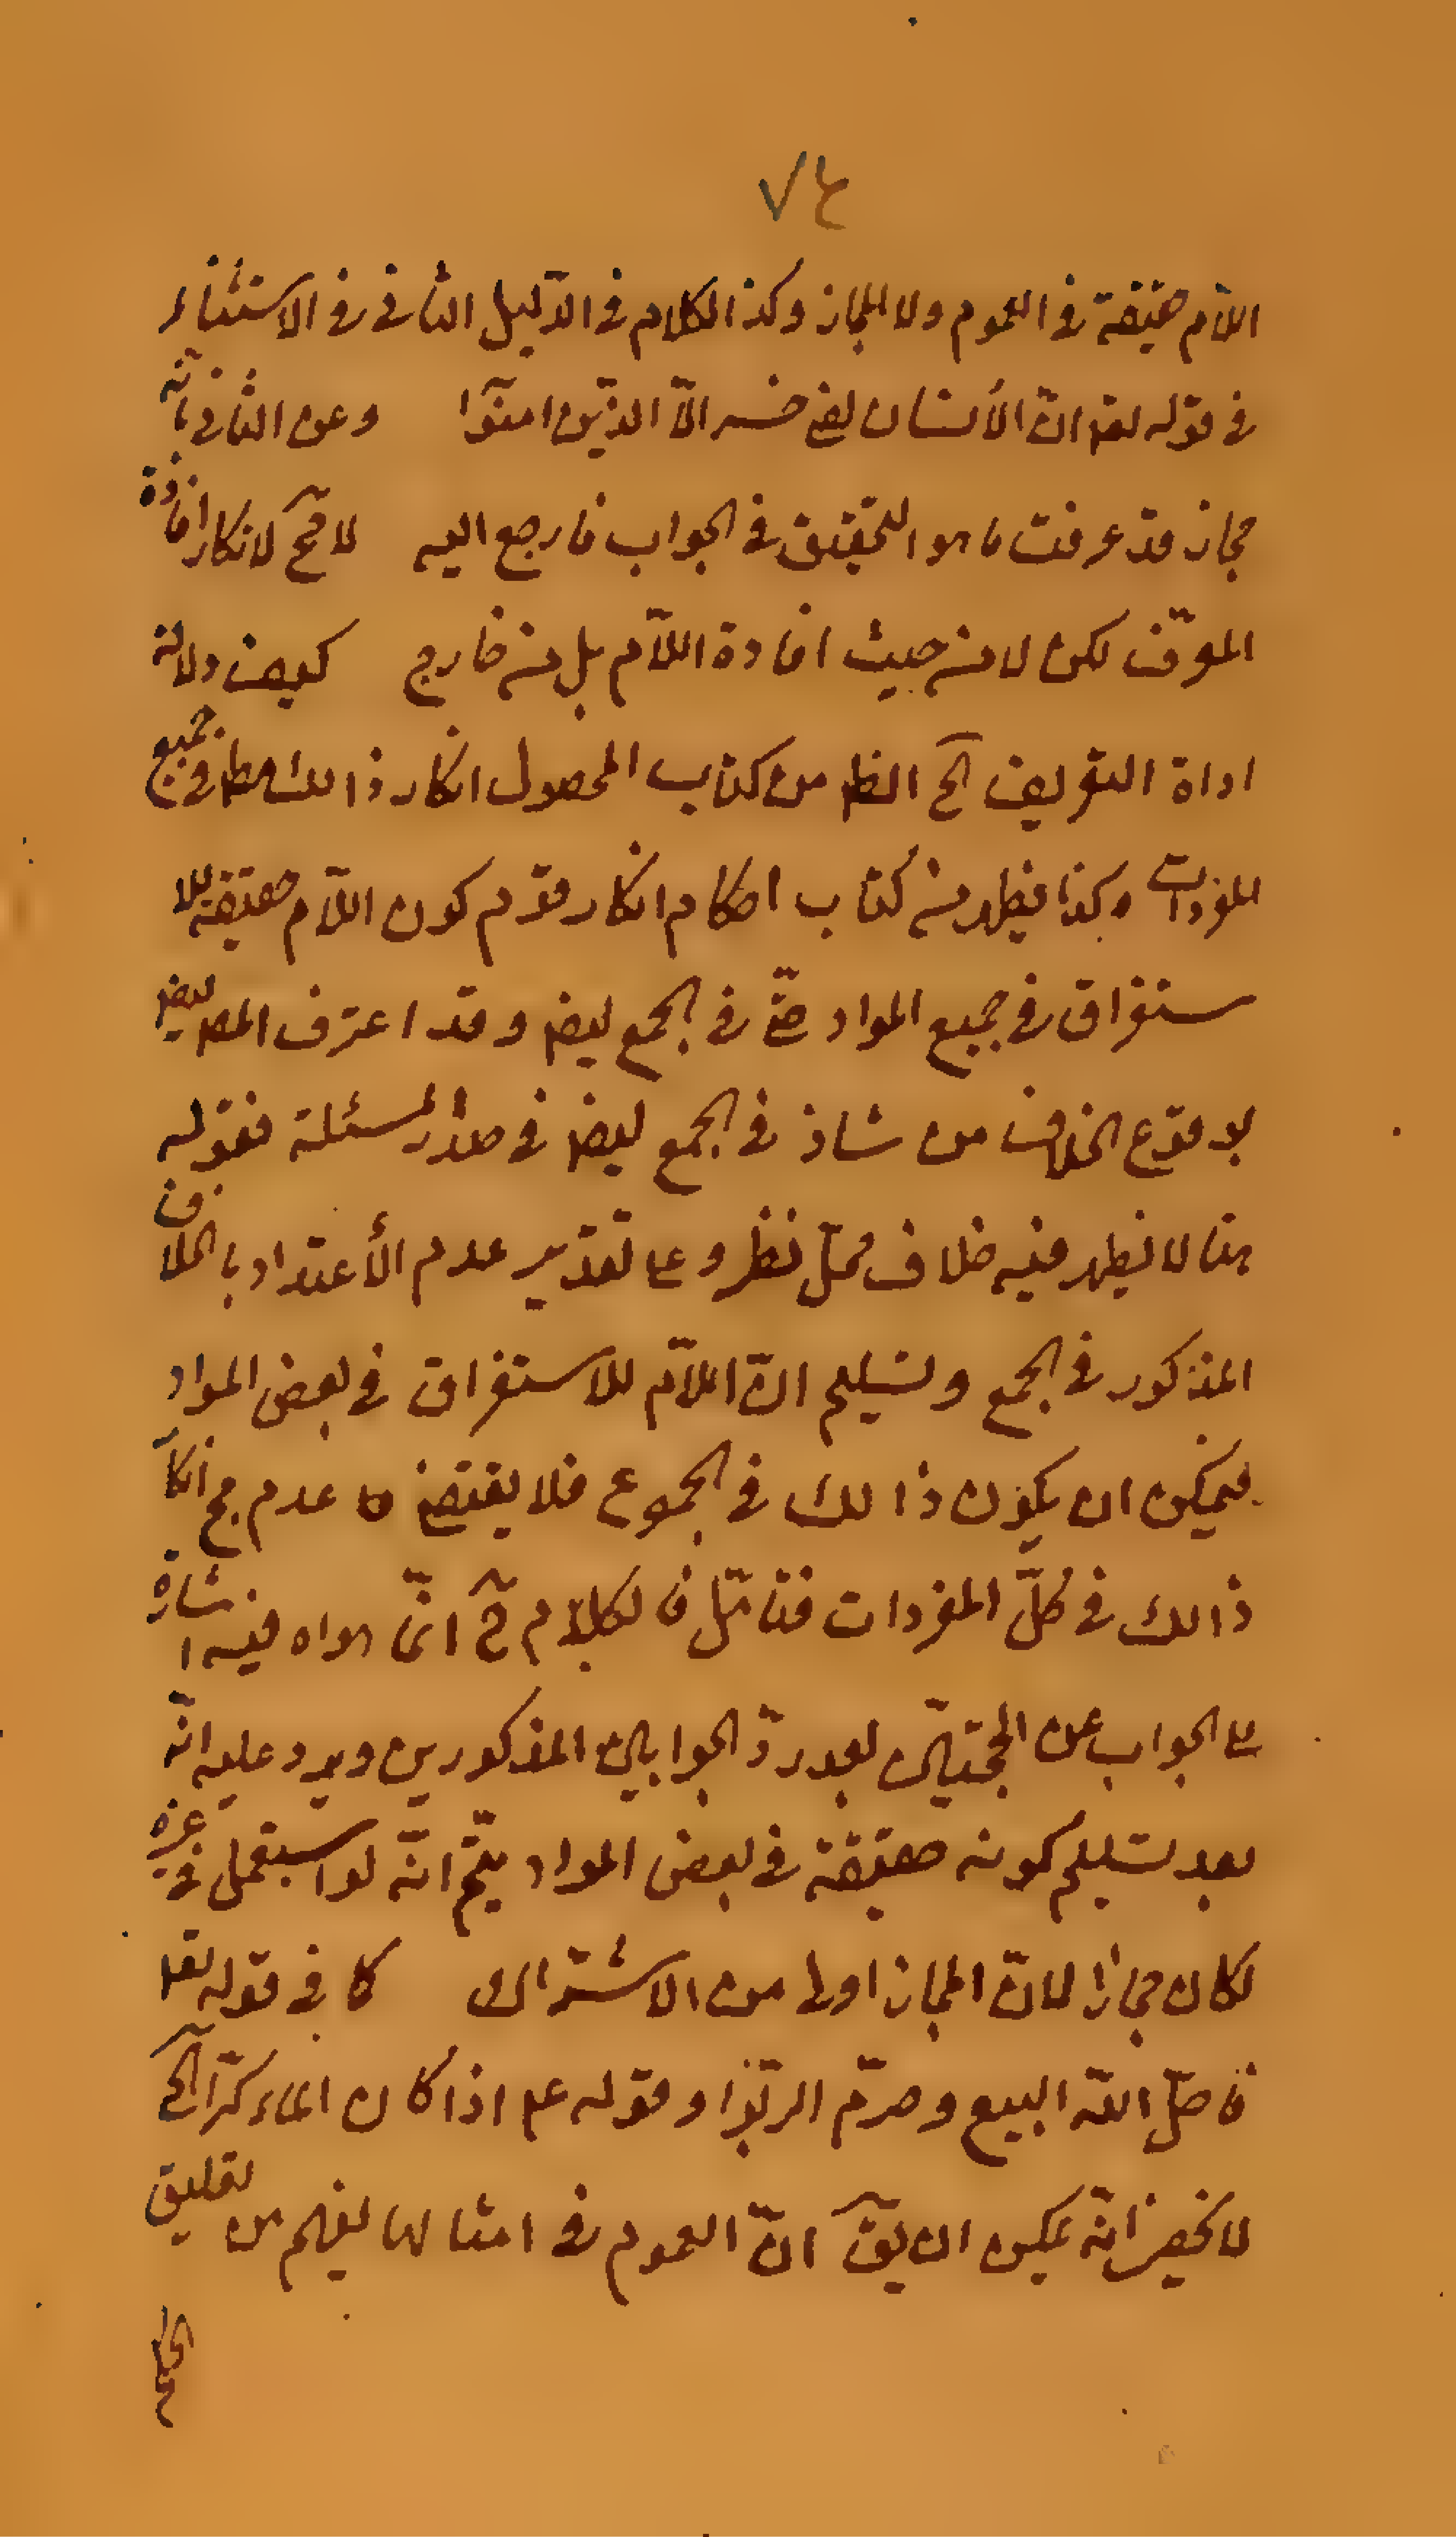 ٧٤
اللآم حقيقة فى العموم ولا المجاز وكذا الكلام فى الدّليل الثانى فى الاستثناء
فى قوله تعہ انّ الأنسان لفى خسر الاّ الذّين امنوا وعن الثانى بانّه
مجاز قد عرفت ما هو التحقيق فى الجواب فارجع اليه لا مجٓ لانكار افادة
المعرّف لكن لا من حيث افادة اللآم بل من خارج كيف ودلالة
اداة التعريف الخ الظہ من كتاب المحصول انكار ذالك مطہ فى جميع
المفردات وكذا يظهر من كتاب احكام انكار قوم كون اللآم حقيقة للا
ستغراق فى جميع المواد حتّى فى الجمع ايضہ وقد اعترف المصہ ايضہ
بوقوع الخلاف من شاذ فى الجمع ايضہ فى صدر المسئلة فقوله
هنا لا يظهر فيه خلاف محلّ نظر وعلى تقدير عدم الأعتداد بالخلاف
المذكور فى الجمع وتسليم انّ اللآم للاستغراق فى بعض المواد
فيمكن ان يكون ذالك فى الجموع فلا يقتضى عدم مج انكا
ذالك فى كلّ المفردات فتامّل فالكلام حٓ انّى هواه فيه اشارة
على الجواب عن الحجّتين بعد ردّ الجوابين المذكورين ويرد عليه انّه
بعد تسليم كونه حقيقة فى بعض المواد يتّم انّه لو استعمل فى غيره
لكان مجازا لانّ المجاز اولى من الاشتراك كما فى قوله تعہ
فاحلّ اللّه البيع وحرّم الرّبوا وقوله عم اذا كان الماء كرّا الخ
لا يخفى انّه يمكن ان يقٓ انّ العموم فى امثالها يفهم من تعليق
الحكم